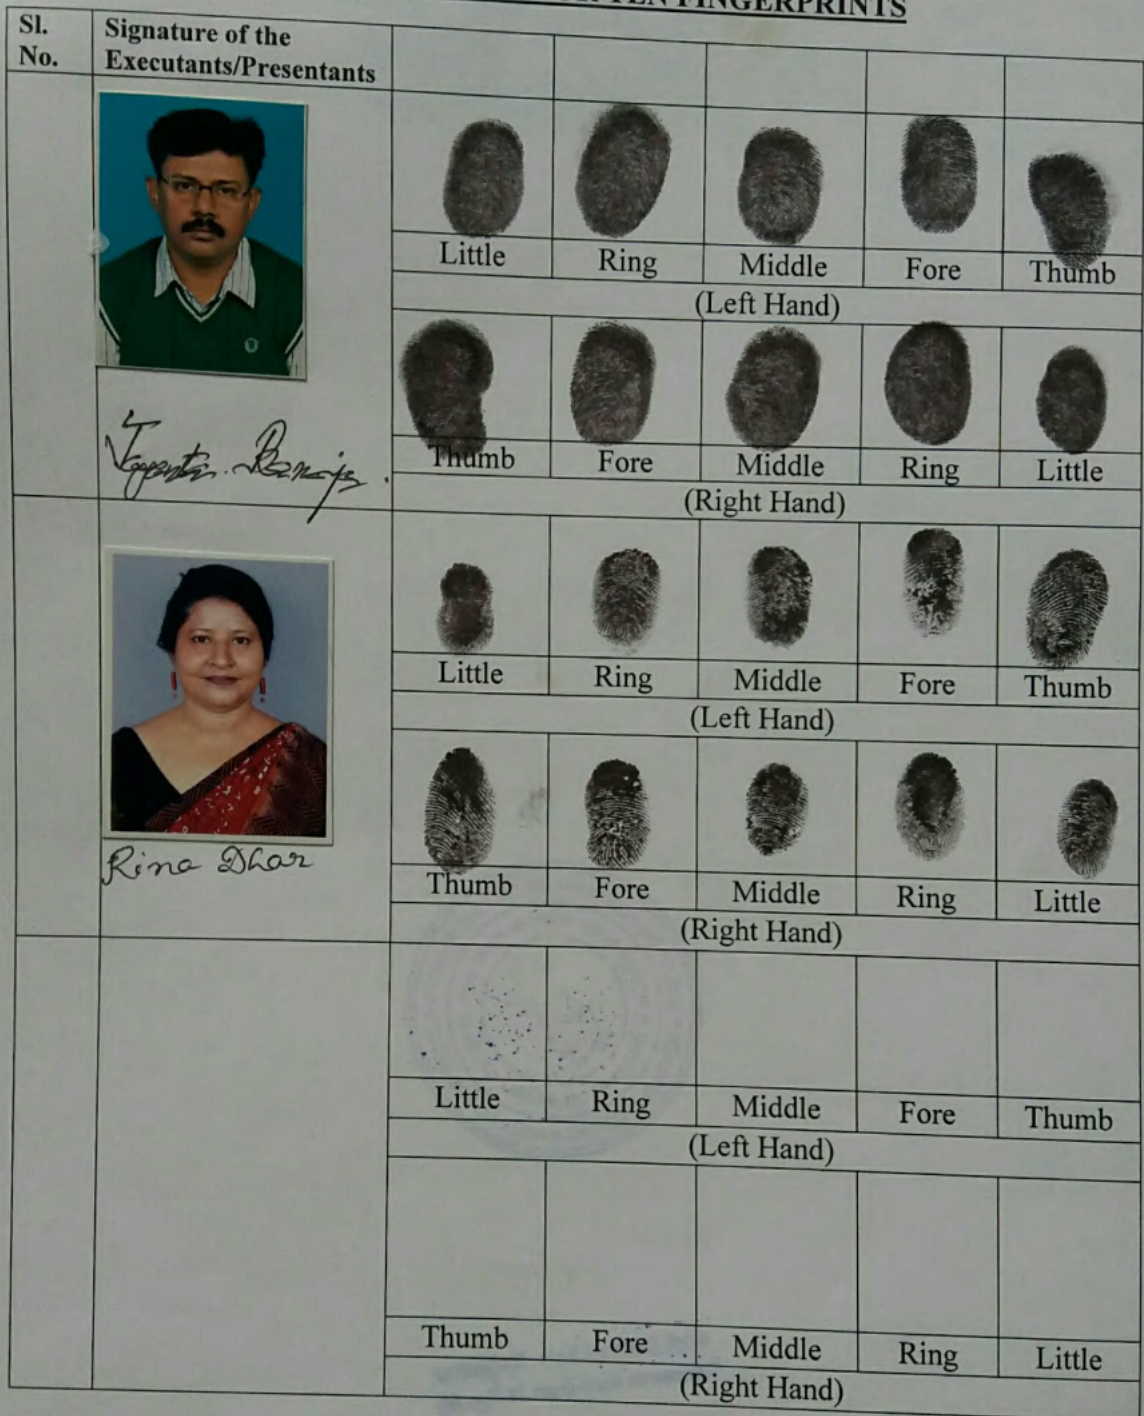 TEN FINGERPRINTS
Sl. No.
Signature of the Executants/Presentants
Little Ring Middle Fore Thumb
(Left Hand)
Thumb Fore Middle Ring Little
(Right Hand)
Little Ring Middle Fore Thumb
(Left Hand)
Rina Dhar
Thumb Fore Middle Ring Little
(Right Hand)
Little Ring Middle Fore Thumb
(Left Hand)
Thumb Fore Middle Ring Little
(Right Hand)